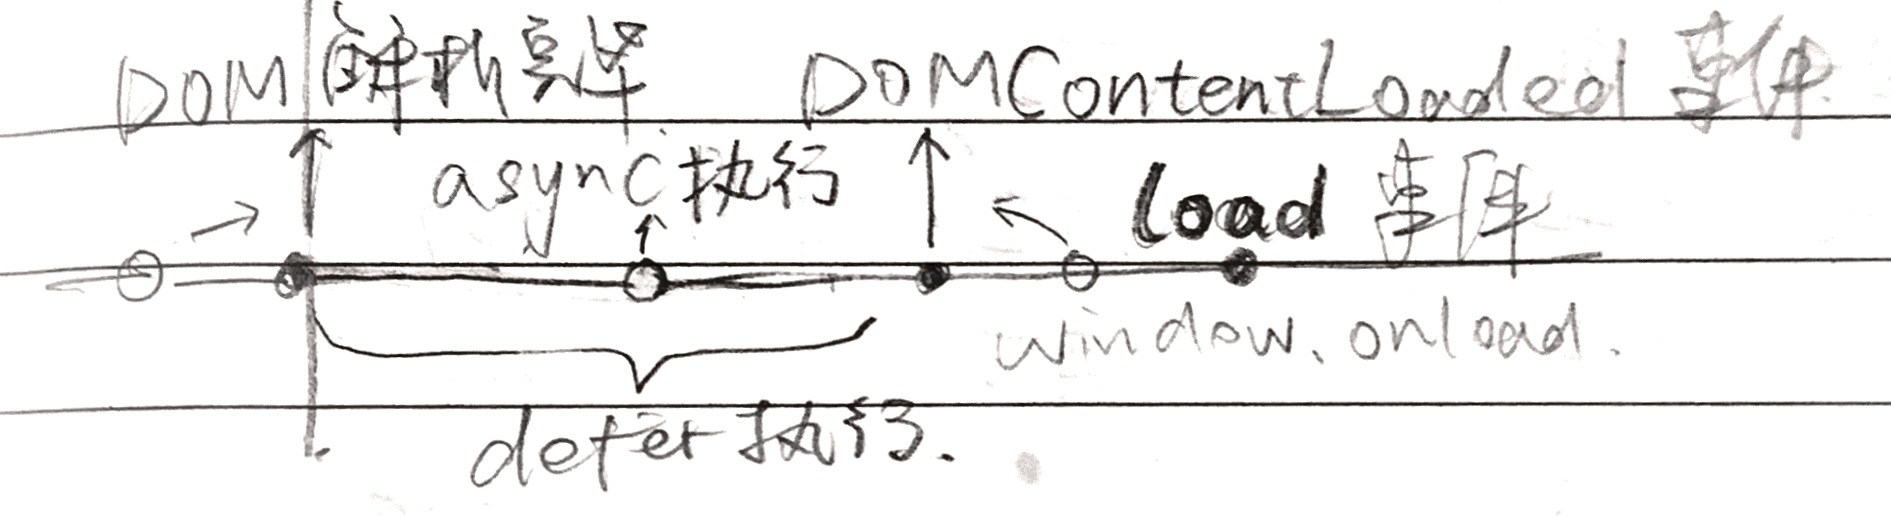 DOM 解析完毕
DOMContentLoaded 事件
async 执行
load 事件
window.onload.
defer 执行.